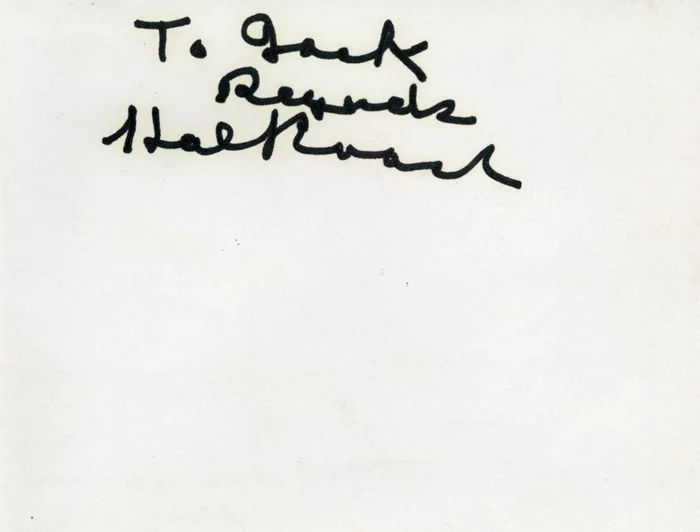 To Jack
Regards
Hal Roach